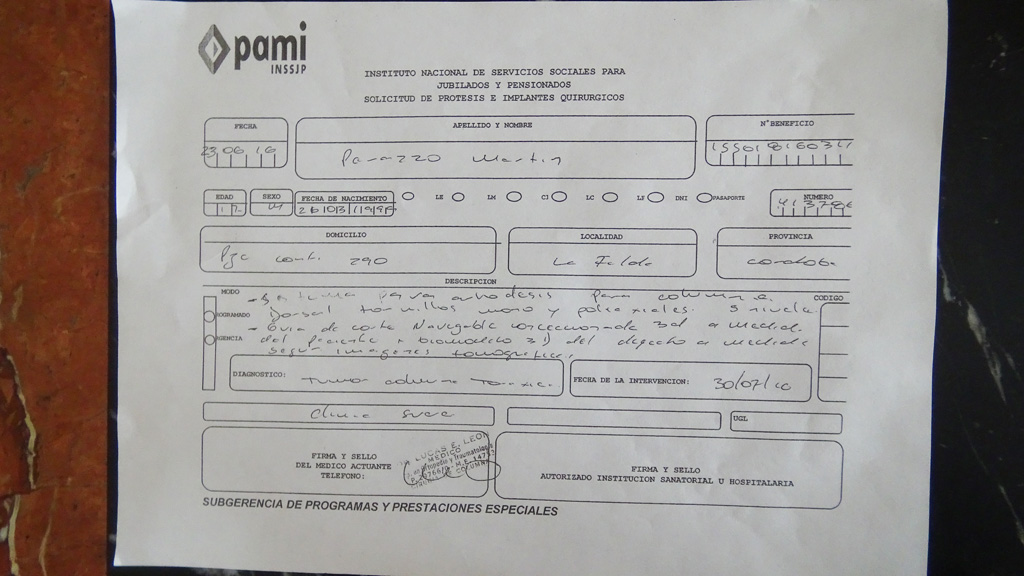 pami
INSSJP
INSTITUTO NACIONAL DE SERVICIOS SOCIALES PARA
JUBILADOS Y PENSIONADOS
SOLICITUD DE PROTESIS E IMPLANTES QUIRURGICOS
FECHA
APELLIDO Y NOMBRE
N°BENEFICIO
23 06 16
Parazzo Martin
EDAD
SEXO
FECHA DE NACIMIENTO
LE
LM
CI
LC
LF
DNI
PASAPORTE
NUMERO
DOMICILIO
LOCALIDAD
PROVINCIA
290
La Falda
cordoba
DESCRIPCION
MODO
CODIGO
- Sistema para artrodesis para columna
ROGRAMADO
Dorsal tornillos mono y poliaxiales. 5 nivele
- Guia de corte Navegable 3d a medida
AGENCIA
del paciente + biomodelo 3D del a medida
segun imagenes tomograficas
DIAGNOSTICO:
tumor columna
FECHA DE LA INTERVENCION:
30/07/16
Clinica
UGL
FIRMA Y SELLO
DEL MEDICO ACTUANTE
TELEFONO:
LUCAS E. LEON
MEDICO
Ortopedia y Traumatologia
FIRMA Y SELLO
AUTORIZADO INSTITUCION SANATORIAL U HOSPITALARIA
SUBGERENCIA DE PROGRAMAS Y PRESTACIONES ESPECIALES